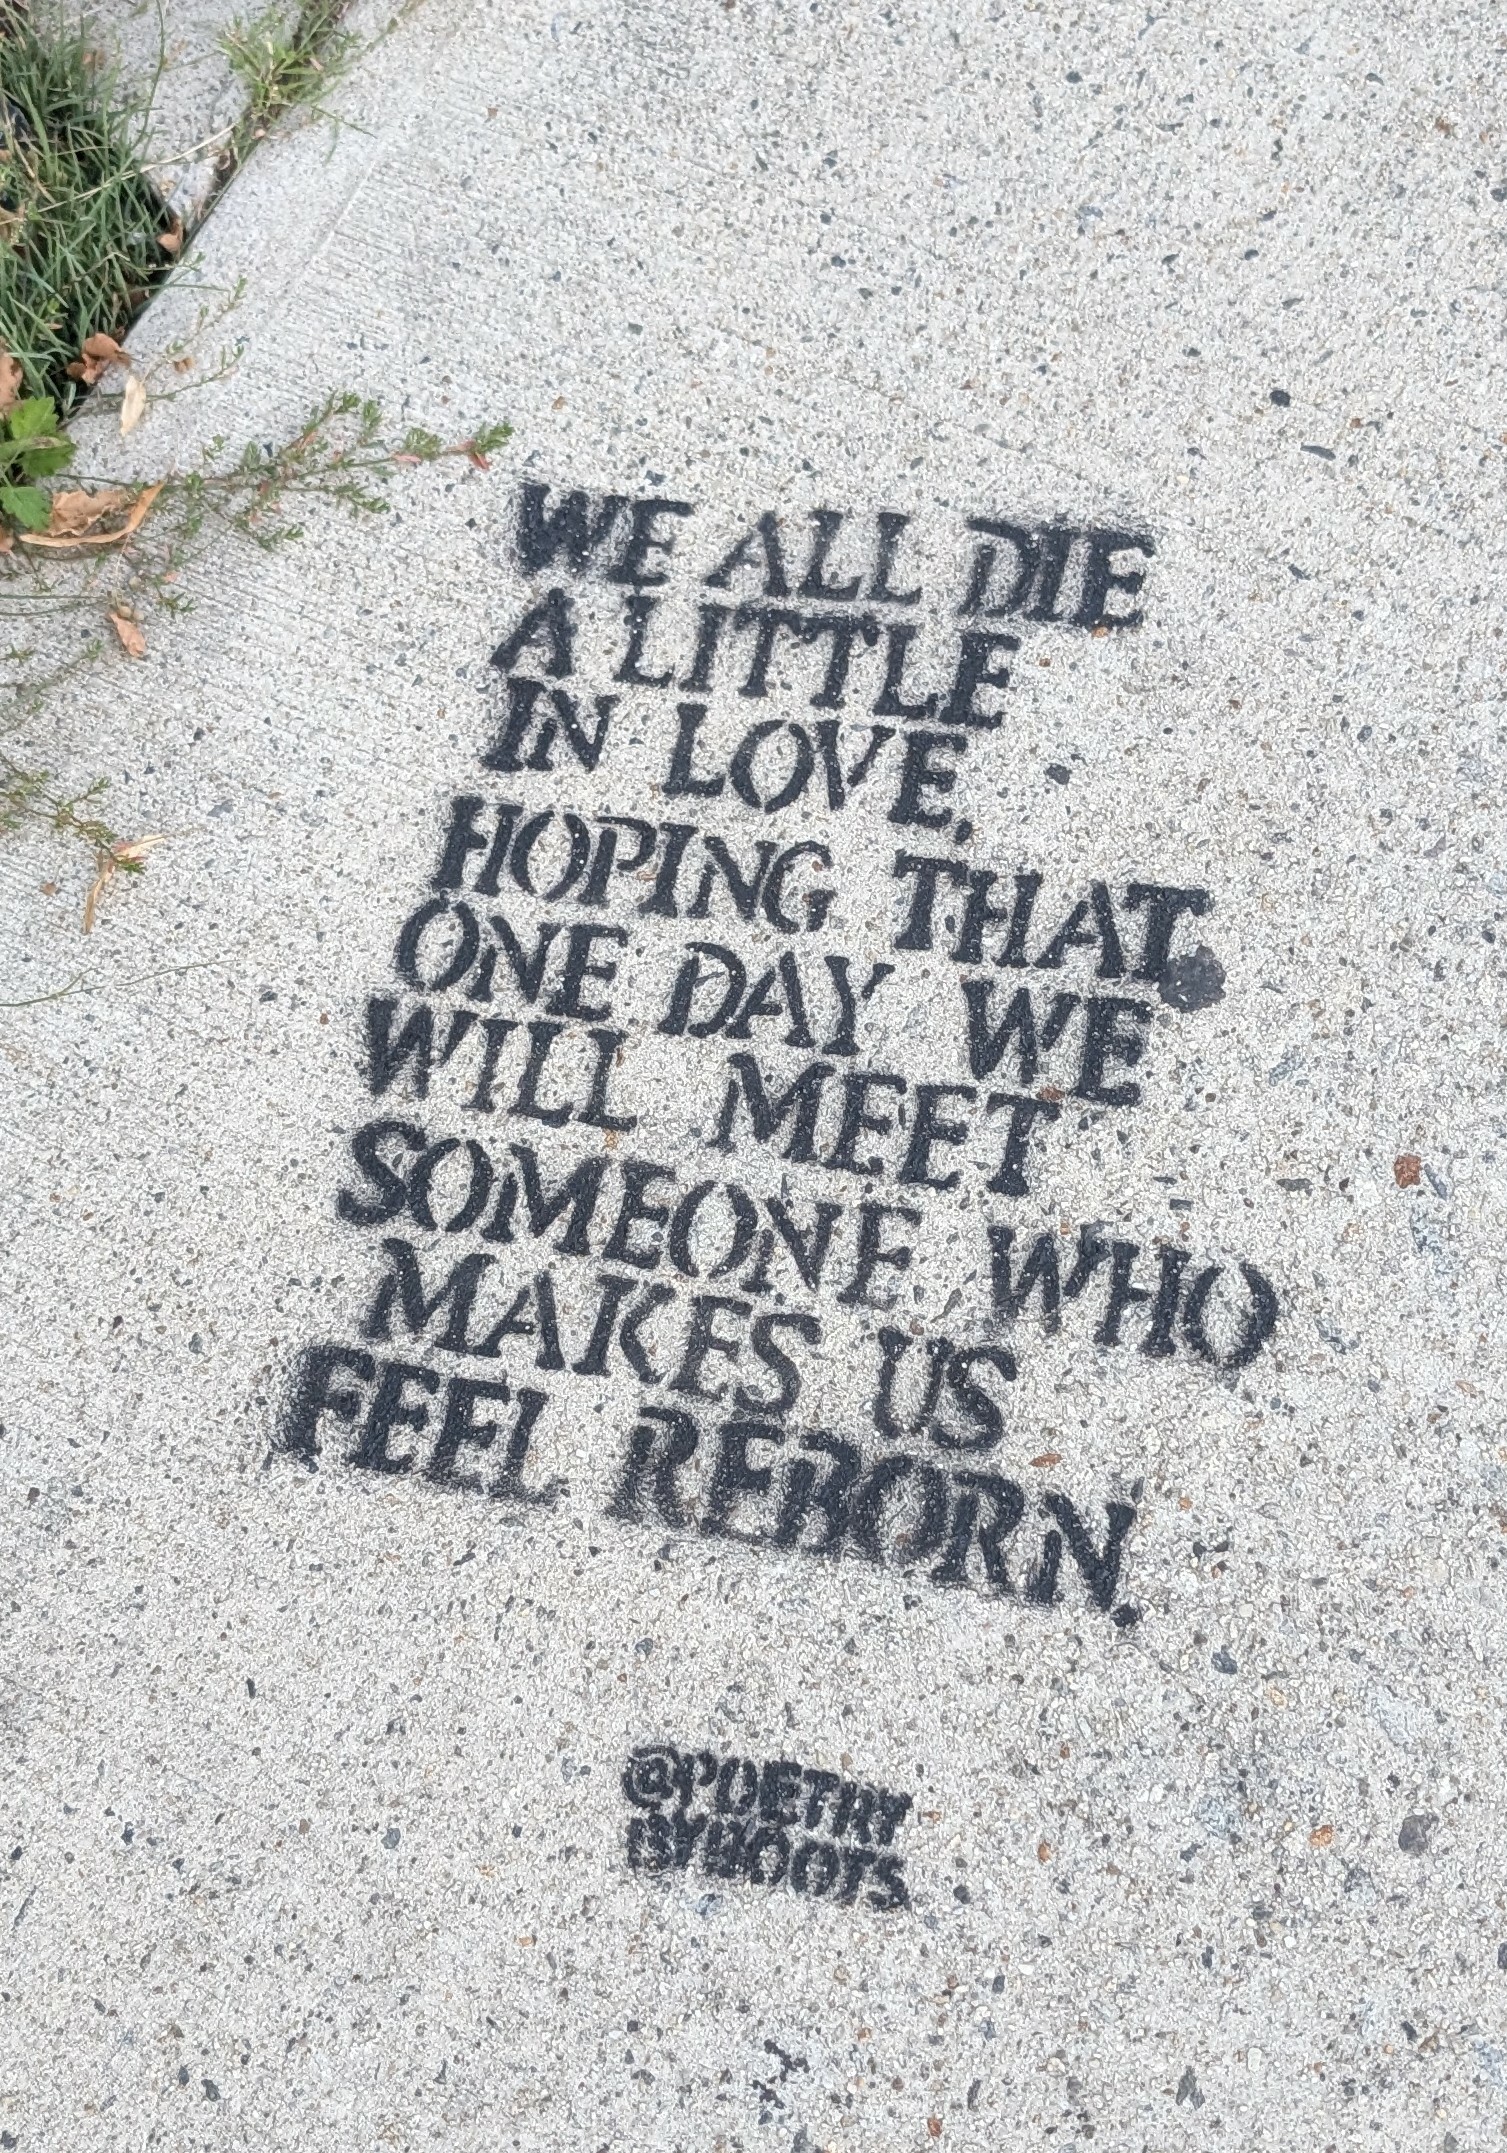 WE ALL DIE
A LITTLE
IN LOVE,
HOPING THAT
ONE DAY WE
WILL MEET
SOMEONE WHO
MAKES US
FEEL REBORN.
@POETRY
BYBOOTS